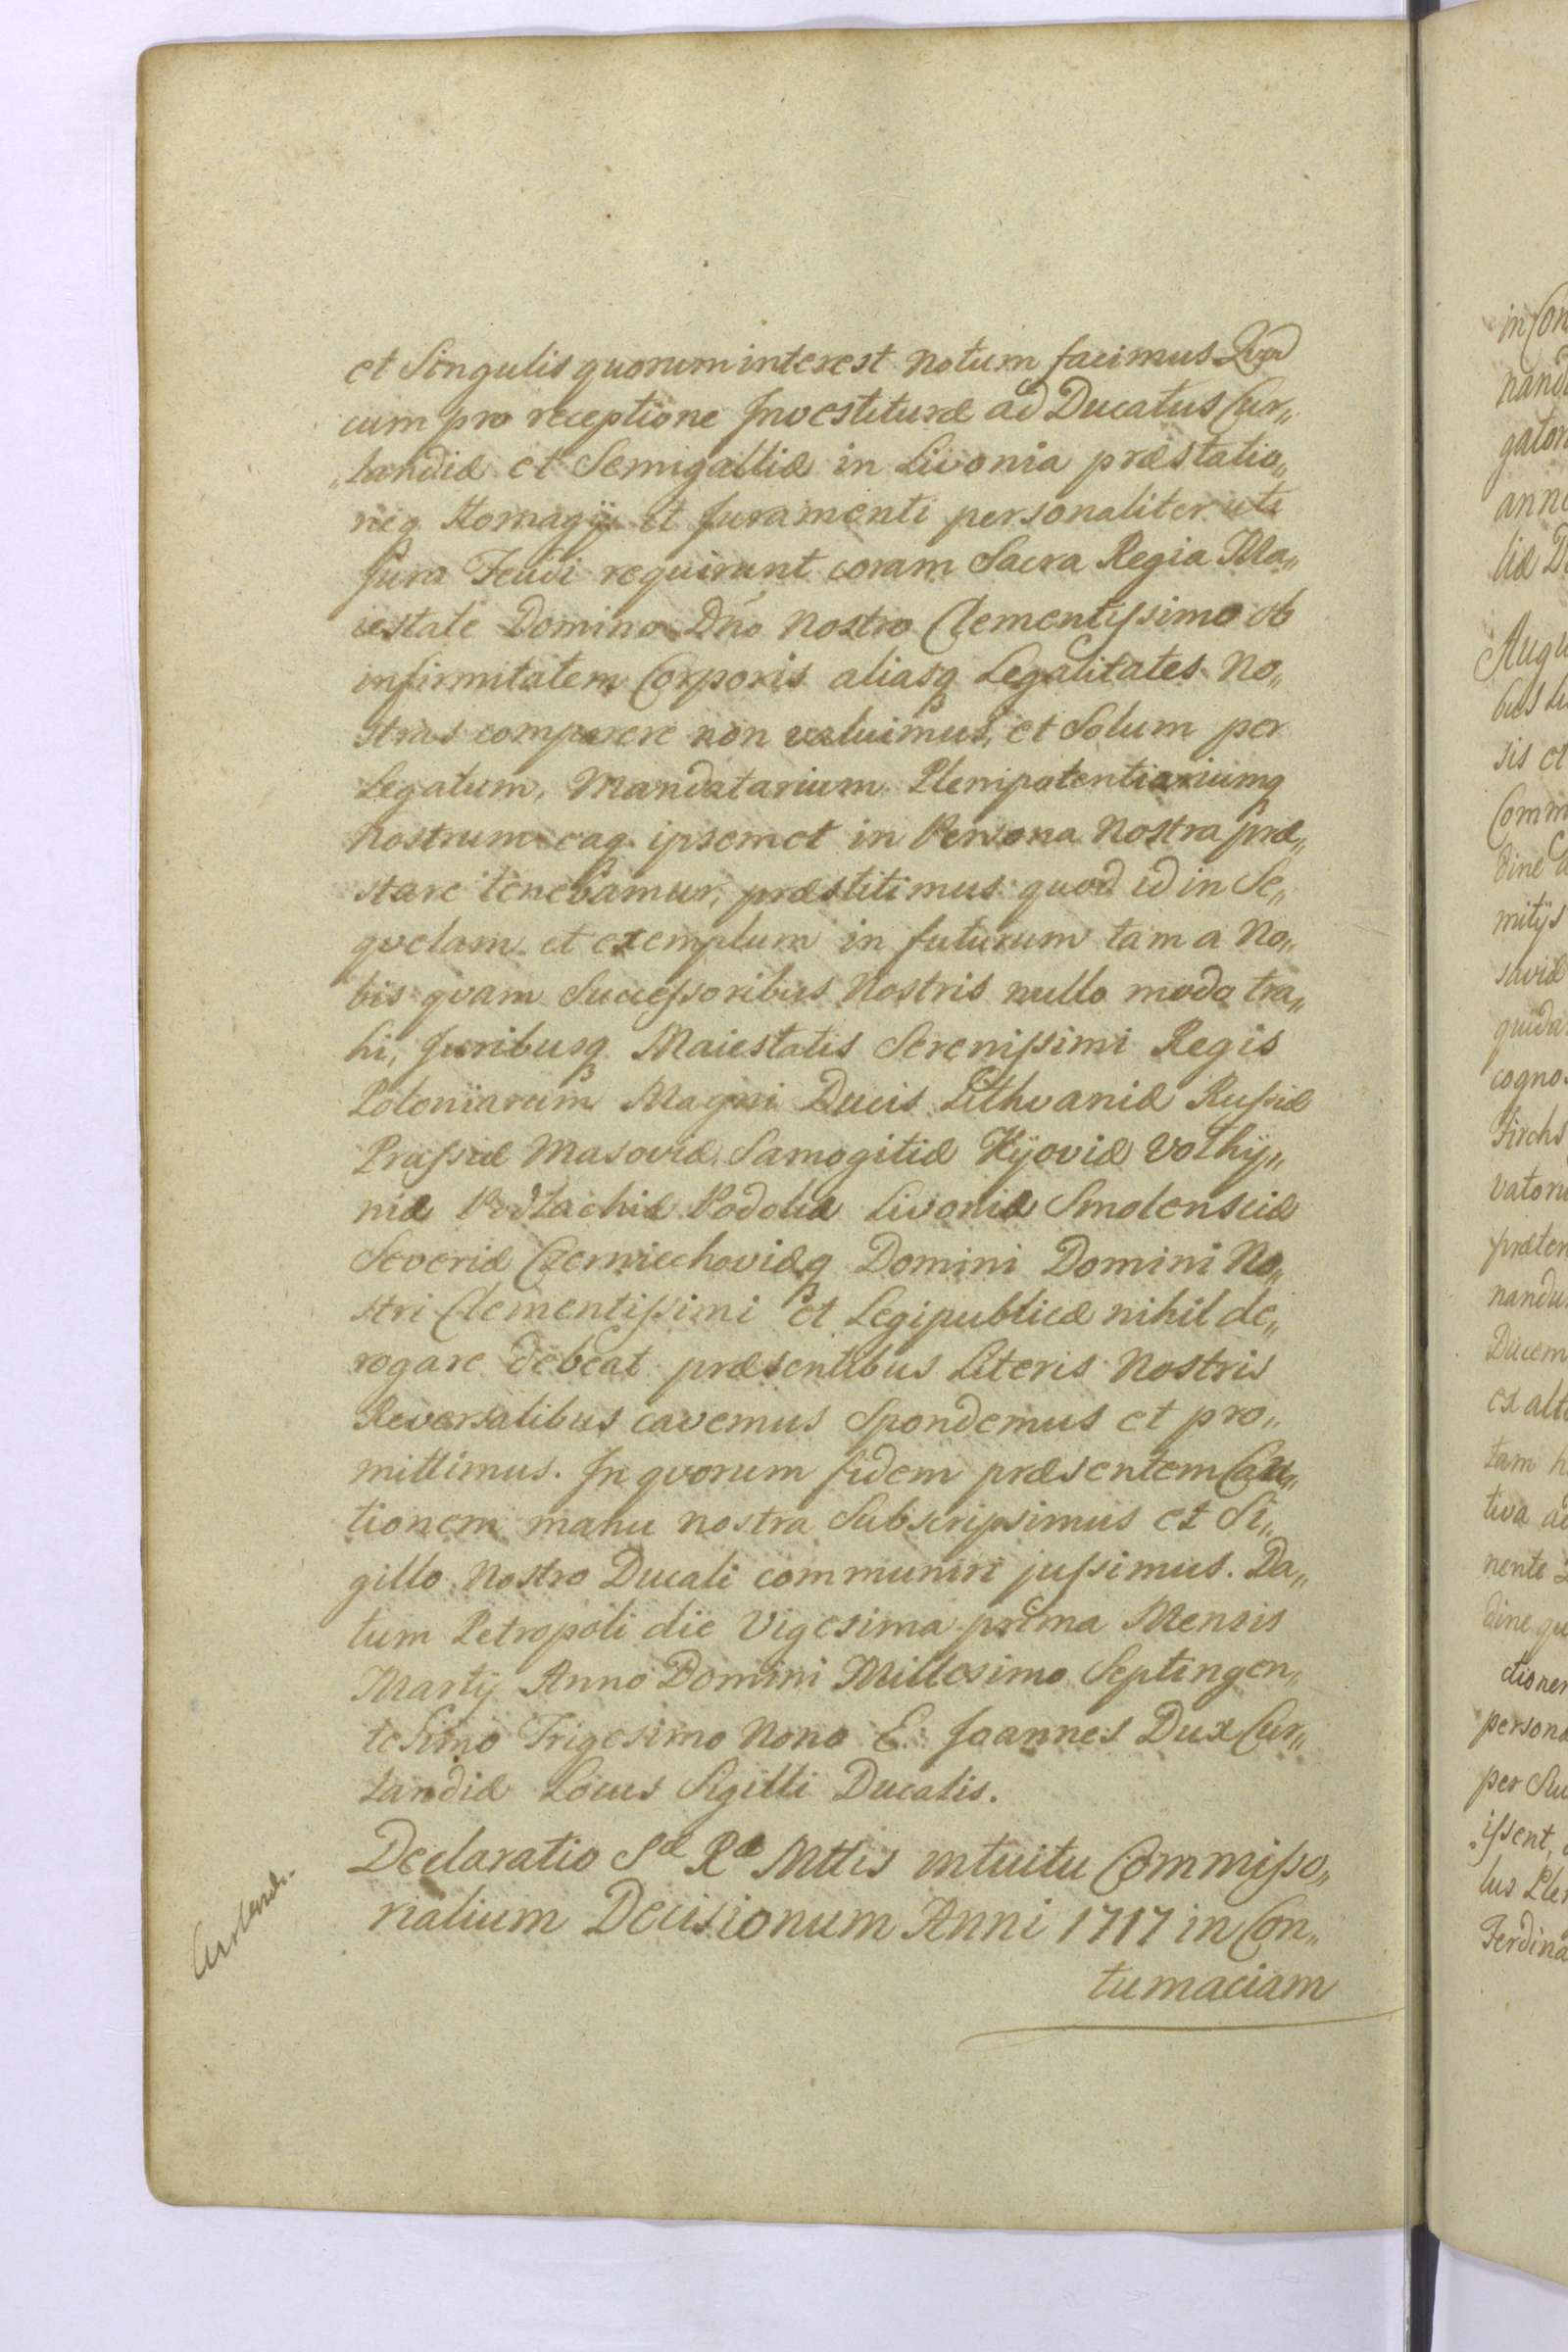 et Singulis quorum interest notum facimus Qvod
cum pro receptione Investituræ ad Ducatus Cur„
„landiæ et Semigalliæ in Livonia præstatio„
neq Homagÿ et Juramenti personaliter uti
Jura Feudi requirunt coram Sacra Regia Ma„
iestate Domino Dño Nostro Clementissimo ob
infirmitatem Corporis aliasq Legalitates No„
stras comparere non valuimus, et Solum per
Legatum, Mandatarium Plenipotentiariumq
Nostrum eaq ipsemet in Persona Nostra præ„
stare tenebamur, præstitimus quod id in Se„
qvelam et exemplum in futurum tam a No„
bis qvam Successoribus Nostris nullo modo tra„
hi, Juribusq Maiestatis Serenissimi Regis
Poloniarum Magni Ducis Lithvaniæ Russiæ
Prussiæ Masoviæ Samogitiæ Kÿoviæ Volhÿ„
niæ Podlachiæ Podoliæ Livoniæ Smolensciæ
Severiæ Czerniechoviæq Domini Domini No„
stri Clementissimi et Legipublicæ nihil de„
rogare debeat præsentibus Literis Nostris
Reversalibus cavemus Spondemus et pro„
mittimus. In qvorum fidem præsentem Cau„
tionem manu nostra Subscripsimus et Si„
gillo Nostro Ducali communiri jussimus. Da„
tum Petropoli die Vigesima prima Mensis
Martÿ Anno Domini Millesimo Septingen„
tesimo Trigesimo Nono E. Joannes Dux Cur„
landiæ Locus Sigilli Ducalis.
Declaratio Sæ Ræ Mttis intuitu Commisso„
rialium Decisionum Anni 1717 in Con„
tumaciam
in Con
nand
gator
ann
liæ D
Augu
bus Li
sis et
Comm
dine
mitÿs
saviæ
quida
cogno
Firchs
vaton
præten
nandu
Ducem
ex alt
tam h
tiva ad
nente
dine qu
ctioner
persona
per Su
issent,
lus Ple
Ferdina